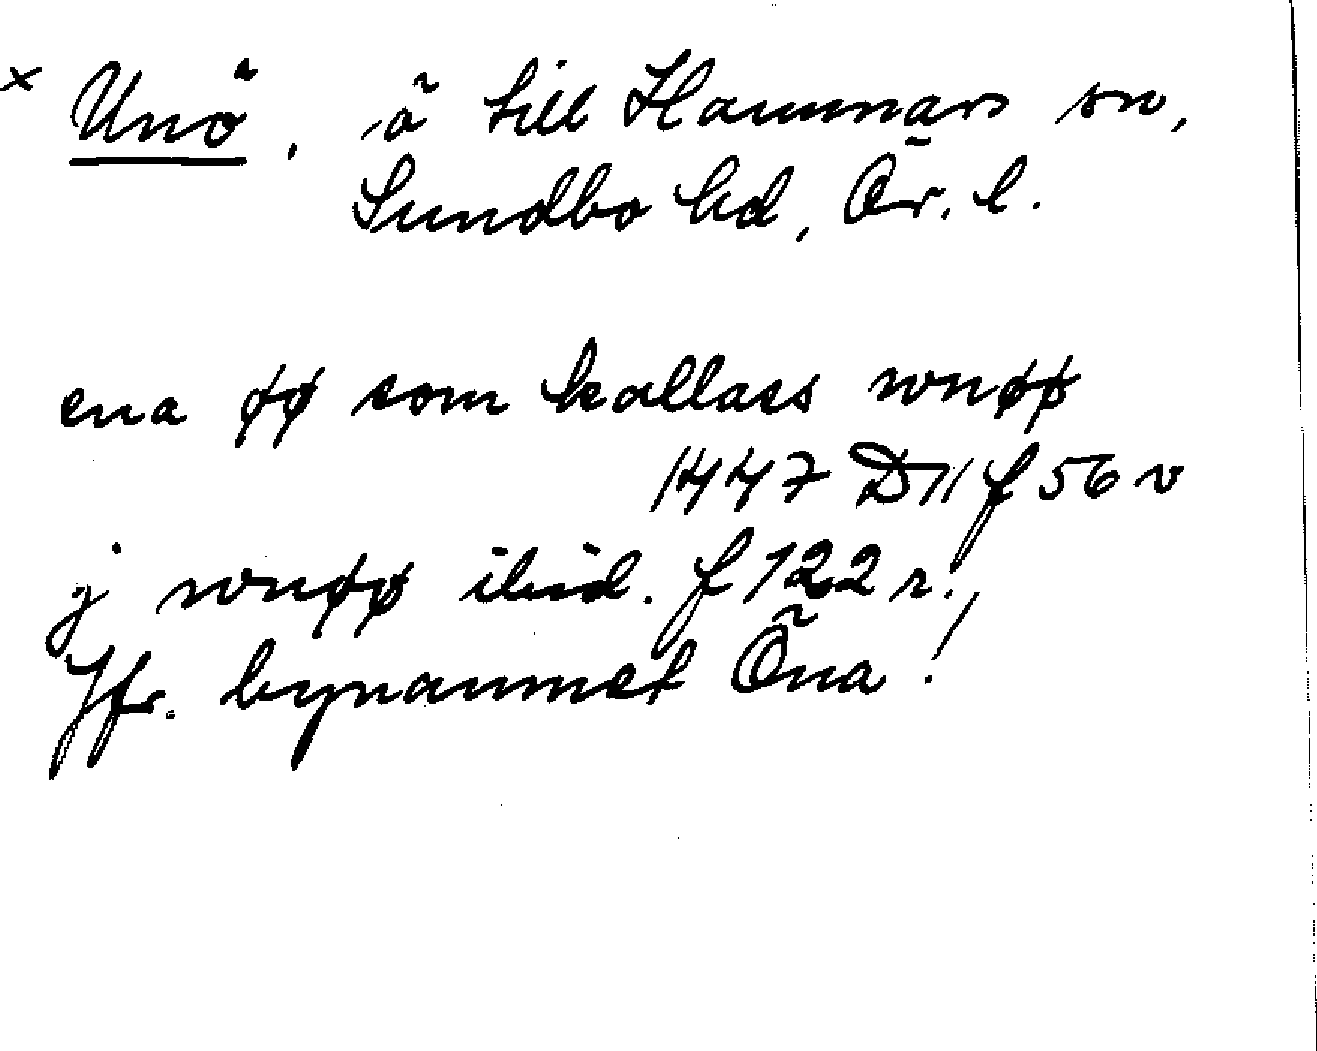 × Unö, ö till Hammars sn,
Sundbo hd, Ör. l.
ena øø som kallass wnøø
1447 D 11 f 56 v
j wnøø ibid. f 122 r.
Jfr. bynamnet Öna!